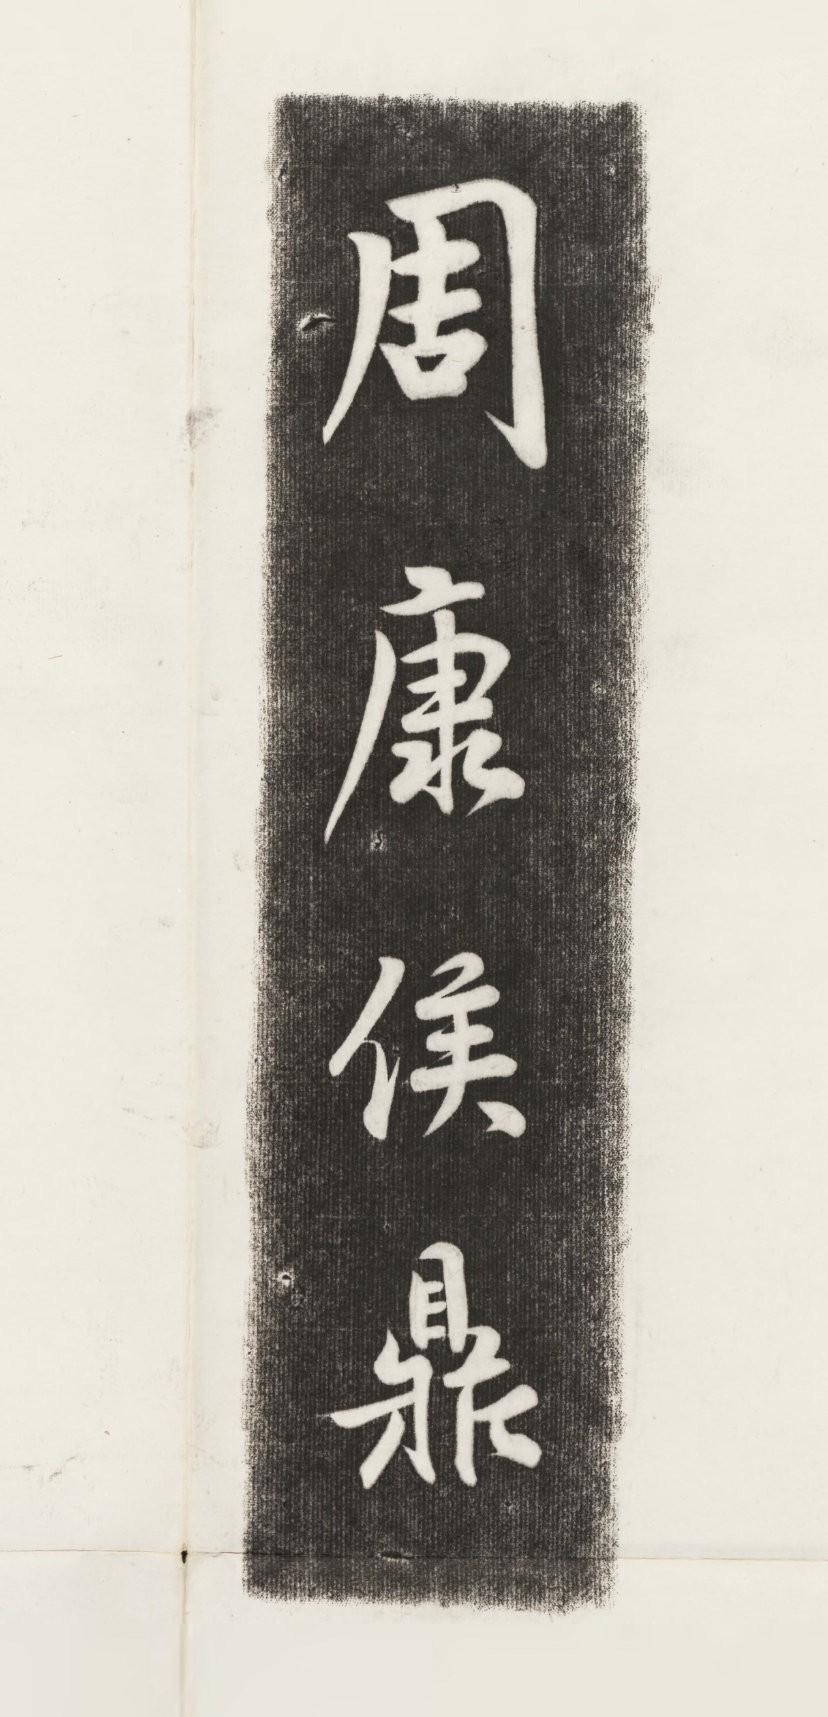 周康侯鼎